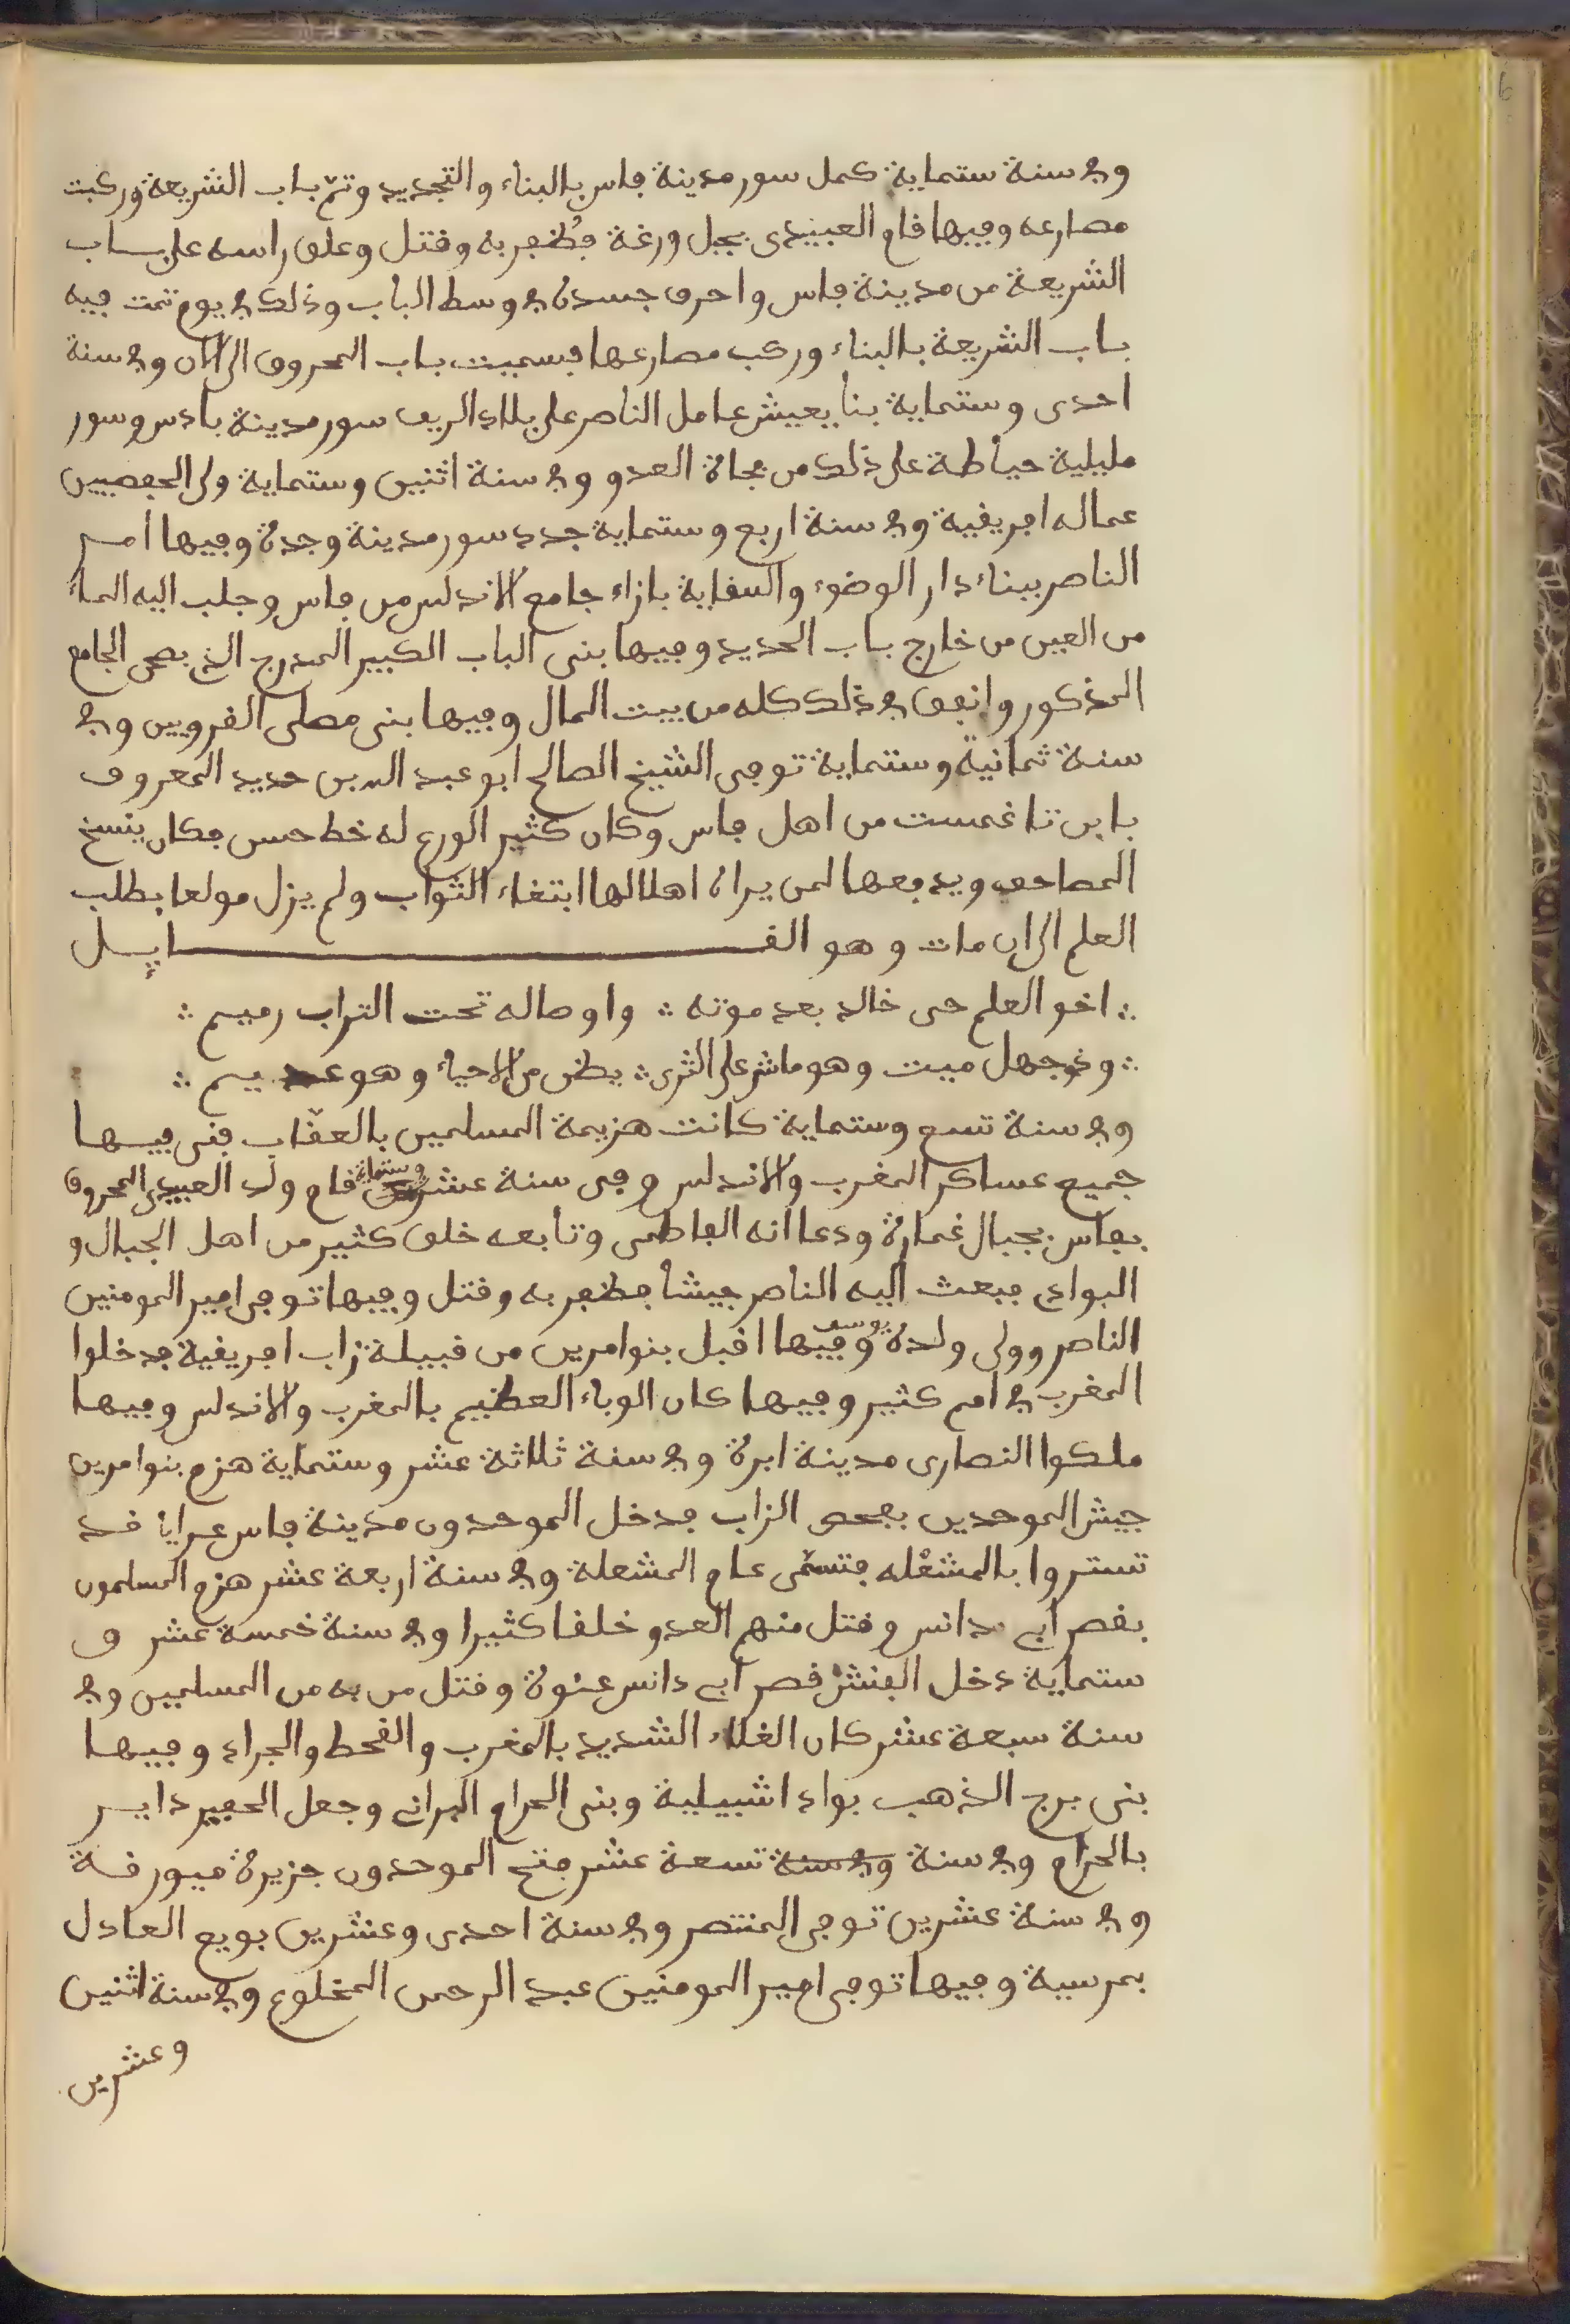 وفي سنة ستماية كمل سور مدينة فاس بالبناء والتجديد وتمّ باب الشريعة وركبت
مصارعه وفيها قام العبيدي بجبل ورغة فظُفِر به وقتل وعلق راسه على باب
الشريعة من مدينة فاس واحرق جسده في وسط الباب وذلك في يوم تمت فيه
باب الشريعة بالبناء وركب مصارعها فسميت باب المحروق الى الآن وفي سنة
احدى وستماية بنا يعيش عامل الناصر على بلاد الريف سور مدينة بادس وسور
مليلية حياطة على ذلك من فجاة العدو وفي سنة اثنين وستماية ولى الحفصيين
عماله افريقية وفي سنة اربع وستماية جدد سور مدينة وجدة وفيها امر
الناصر ببناء دار الوضوء والسقاية بازاء جامع الاندلس من فاس وجلب اليه الماء
من العين من خارج باب الحديد وفيها بنى الباب الكبير المدرج الذي بصحن الجامع
المذكور وانفق في ذلك كله من بيت المال وفيها بنى مصلى القرويين وفي
سنة ثمانية وستماية توفى الشيخ الصالح ابو عبد الله بن حديد المعروف
بابن تاغمست من اهل فاس وكان كثير الورع له خط حسن فكان ينسخ
المصاحف ويدفعها لمن يراه اهلا لها ابتغاء الثواب ولم يزل مولعا بطلب
العلم الى ان مات وهو القـــايل
∴ اخو العلم حى خالد بعد موته ∴ واوصاله تحت التراب رميم ∴
∴ وذو جهل ميت وهو ماش على الثرى ∴ يظن من الاحياء وهو عديم ∴
وفي سنة تسع وستماية كانت هزيمة المسلمين بالعقاب فنى فيها
جميع عساكر المغرب والاندلس وفى سنة عشر وستماية قام ولد العبيدي المحروق
بفاس بجبال غمارة ودعا انه الفاطمى وتابعه خلق كثير من اهل الجبال و
البوادي فبعث اليه الناصر جيشا فظفر به وقتل وفيها توفى امير المومنين
الناصر وولى ولده يوسف وفيها اقبل بنوا مرين من قبيلة زاب افريقية فدخلوا
المغرب في امم كثير وفيها كان الوباء العظيم بالمغرب والاندلس وفيها
ملكوا النصارى مدينة ابرة وفي سنة ثلاثة عشر وستماية هزم بنوا مرين
جيش الموحدين بفحص الزاب فدخل الموحدون مدينة فاس عرايا قد
تستروا بالمشعله فتسمّى عام المشعلة وفي سنة اربعة عشر هزم المسلمون
بقصر ابي دانس وقتل منهم العدو خلقا كثيرا وفي سنة خمسة عشر و
ستماية دخل الفنش قصر ابي دانس عنوة وقتل من به من المسلمين وفي
سنة سبعة عشر كان الغلاء الشديد بالمغرب والقحط والجراد وفيها
بنى برج الذهب بواد اشبيلية وبنى الحرام البراني وجعل الحفير داير
بالحرام وفي سنة وفي سنة تسعة عشر فتح الموحدون جزيرة ميورقة
وفي سنة عشرين توفى المنتصر وفي سنة احدى وعشرين بويع العادل
بمرسية وفيها توفى امير المومنين عبد الرحمن المخلوع وفي سنة اثنين
وعشرين